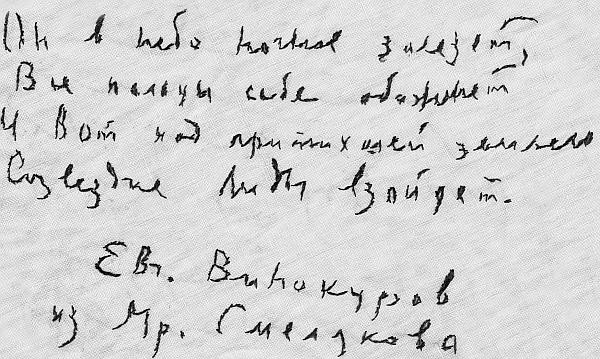 Он в небо ночное залезет,
Все пальцы себе обожжет
И вот над притихшей землею
Созвездие Лиды взойдет.
Евг. Винокуров
из Яр. Смелякова